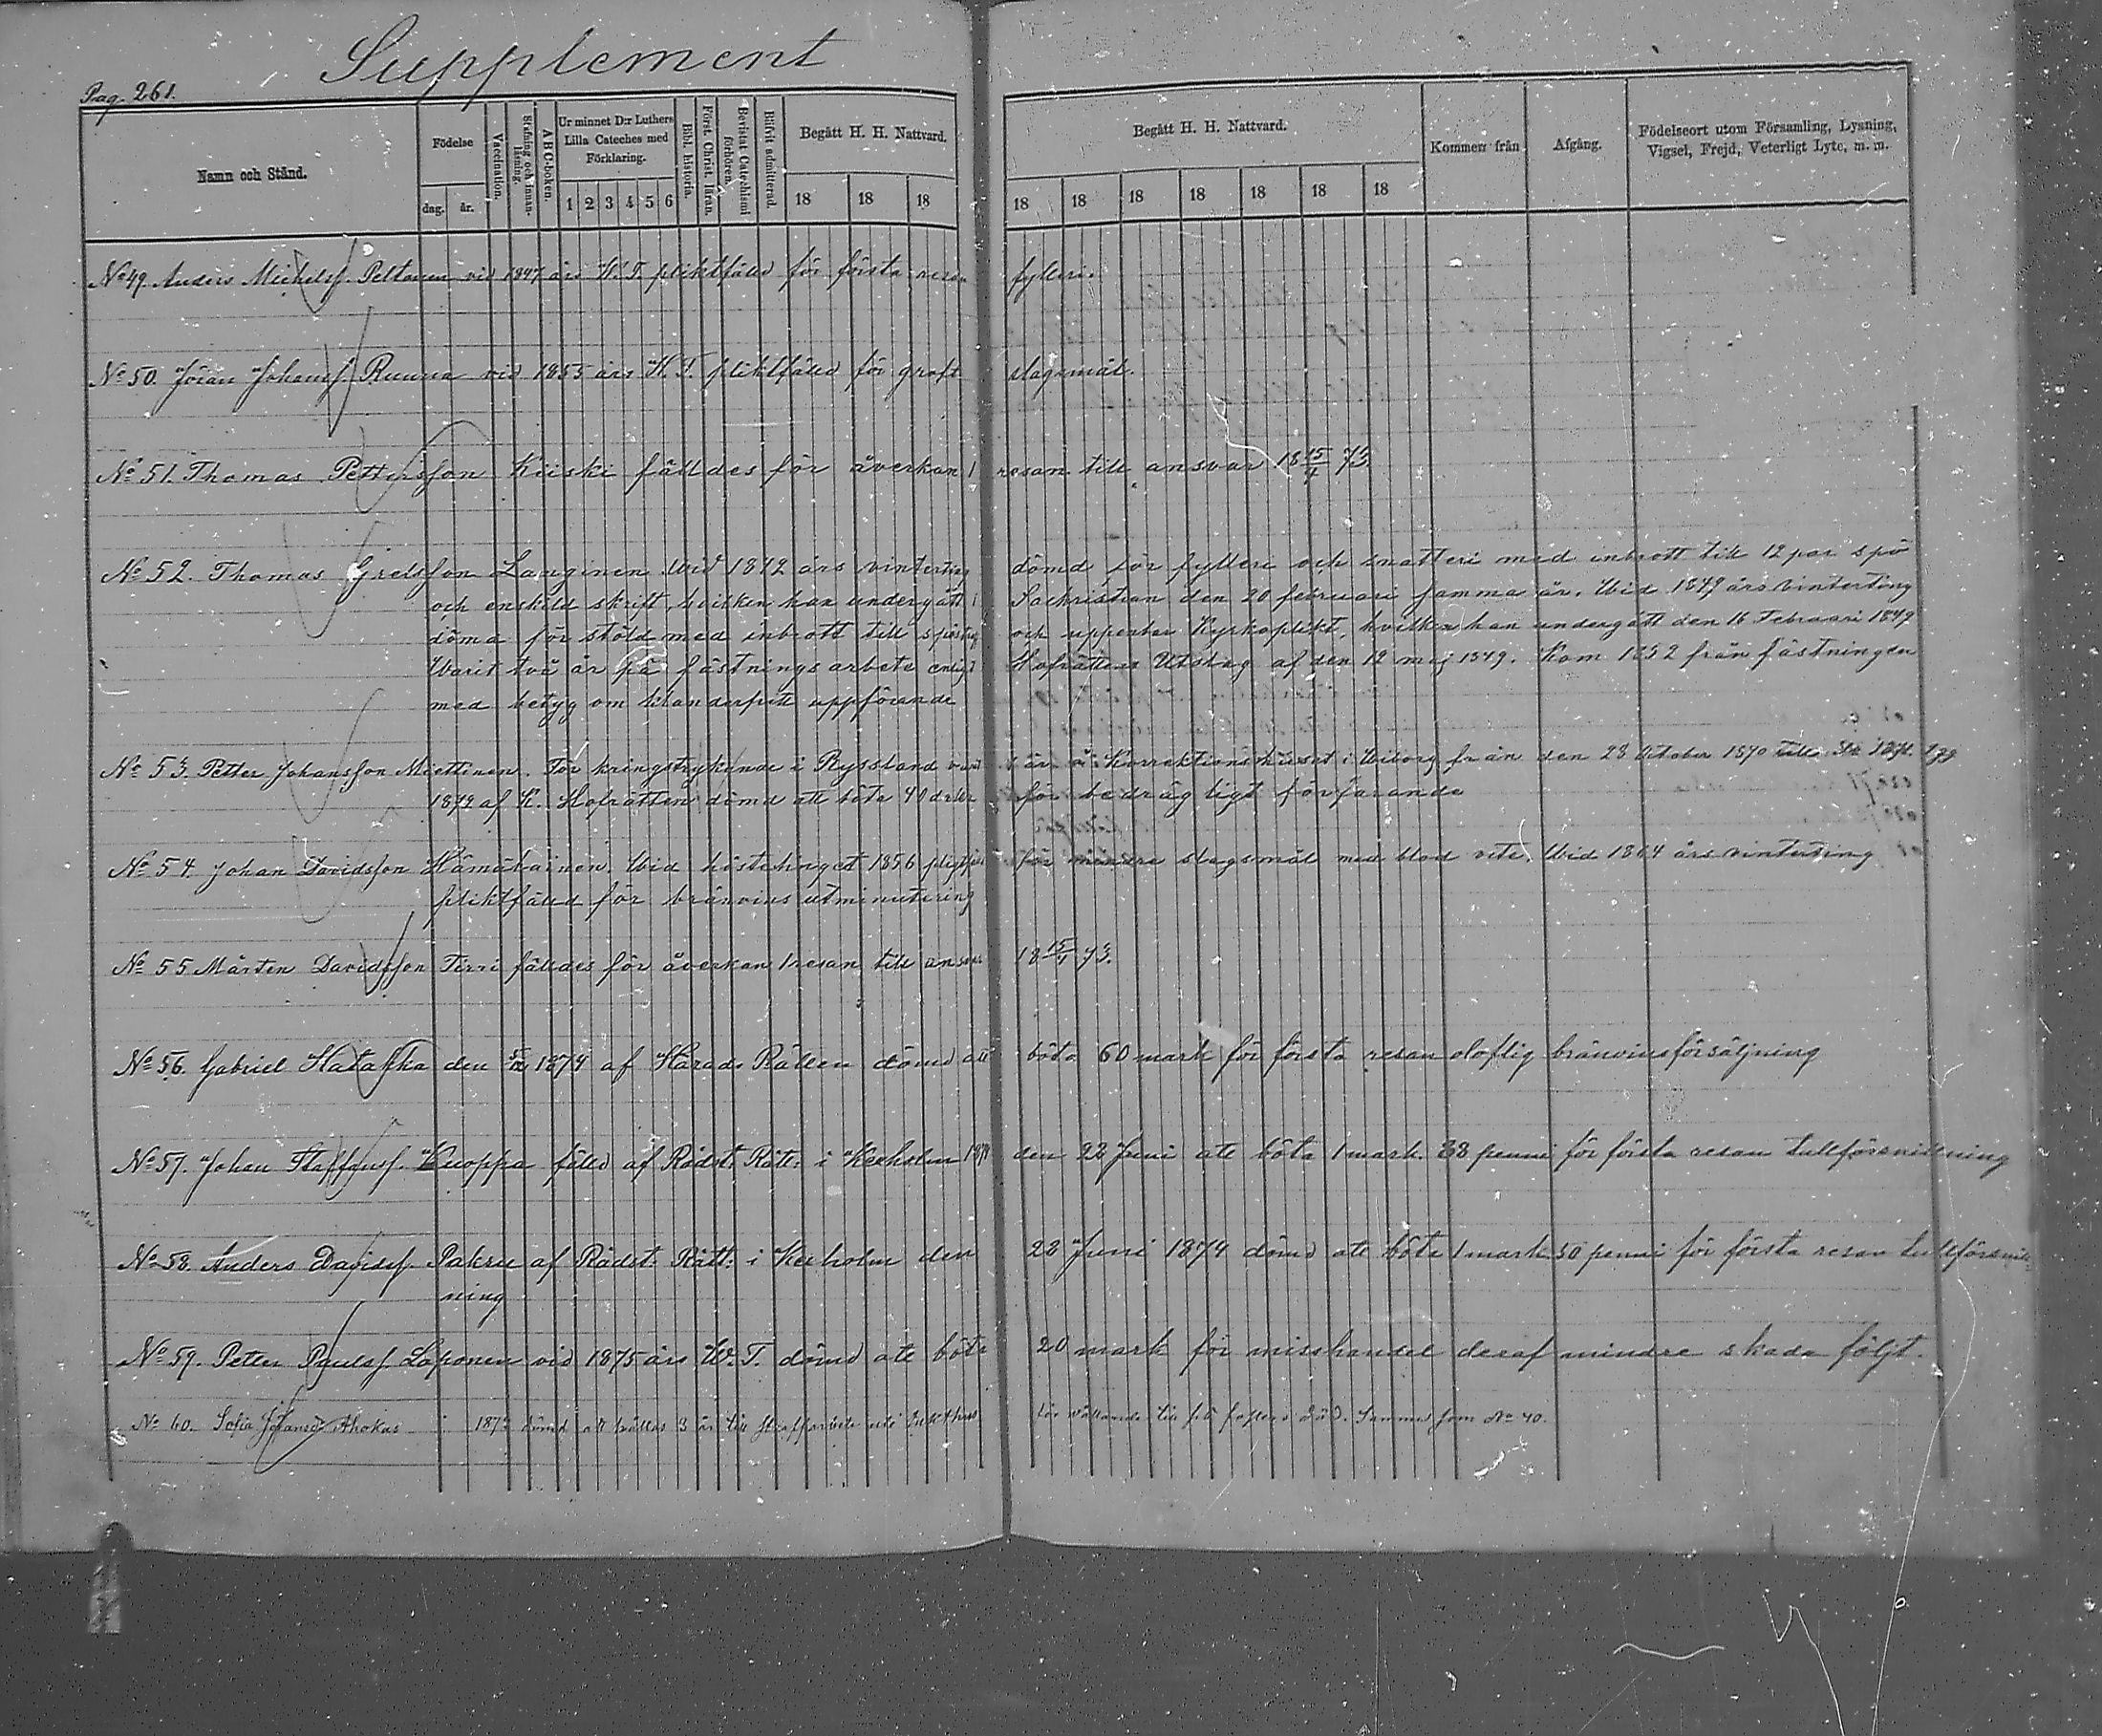 Supplement
Pag. 261.
Namn och Stånd.
Födelse
dag. år.
Vaccination.
Stafning och innanläsning.
ABC-boken.
Ur minnet D:r Luthers Lilla Cateches med Förklaring.
1 2 3 4 5 6
Bibl. historia.
Först. Christ. läran.
Bevistat Catechismi förhören.
Blifvit admitterad.
Begått H. H. Nattvard.
18 18 18
Begått H. H. Nattvard.
18 18 18 18 18 18 18
Kommen från
Afgång.
Födelseort utom Församling, Lysning, Vigsel, Frejd, Veterligt Lyte, m. m.
No 49. Anders Michelsf. Peltonen vid 1847 års H. T. pliktfälld för första resan fylleri.
No 50. Jöran Johansf. Ruuna vid 1855 års H. T. pliktfälld för groft slagsmål.
No 51. Thomas Pettersfon Kiiski fälldes för åverkan 1 resan till ansvar 18 15/4 73
No 52. Thomas Grelsfon Langinen Wid 1842 års vinterting dömd för fylleri och snatteri med inbrott till 12 par spö
och enskild skrift, hvilken han undergått i Sackristian den 20 februari samma år. Wid 1849 års vinterting
döma för stöld med inbrott till spöstraff och uppenbar Kyrkoplikt, hvilken han undergått den 16 Februari 1849
Warit två år på fästningsarbete enligt Hofrättens Utslag af den 12 maj 1849. Kom 1852 från fästningen
med betyg om klanderfritt uppförande
No 53. Petter Johansfon Miettinen. För kringstrykande i Ryssland varit år å Korrektionshuset i Wiborg från den 28 October 1870 till
1872 af K. Hofrätten dömd att böta 40 för bedrägligt förfarande
No 54. Johan Davidsfon Hämäläinen. Wid höstetinget 1856 pligtfäld för mindre slagsmål med blod vite. Wid 1864 års vinterting
pliktfälld för bränvins utminutering
No 55 Mårten Davidsfon Tirri fälldes för åverkan 1 resan till ansvar 18 15/4 73.
No 56. Gabriel Hatakka den 1874 af Härads Rätten dömd att böta 60 mark för första resan oloflig bränvinsförsäljning
No 57. Johan Staffansf. Kuoppa fälld af Rådst: Rätt: i Kexholm 1874 den 28 Juni att böta 1 mark 38 penni för första resan tullförsnillning
No 58. Anders Davidsf. Pakru af Rådst: Rätt: i Kexholm den 28 Juni 1874 dömd att böta 1 mark 50 penni för första resan tullförsnill-
ning
No 59. Petter Paulsf. Laponen vid 1875 års W. T. dömd att böta 20 mark för misshandel deraf mindre skada följt.
No 60. Sofia Johansd. Ahokas i 1873 dömd att hållas 3 år till straffarbete uti tukthus för vållande till sitt fosters död. Samma som No 40.